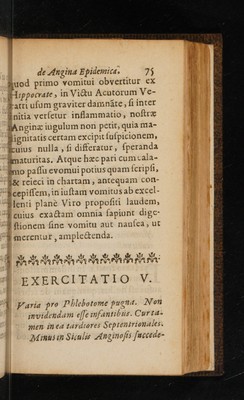 de Angina Epidemica. 75
quod primo vomitui obvertitur ex
Hippocrate, in Victu Acutorum Ve-
ratri usum graviter damnãte, si inter
initia versetur inflammatio, nostræ
Anginæ iugulum non petit, quia ma-
lignitatis certam excipit suspicionem,
cuius nulla, si differatur, speranda
maturitas. Atque hæc pari cum cala-
mo passu evomui potius quam scripsi,
& reieci in chartam, antequam con-
cepissem, in iustam vomitus ab excel-
lenti plane Viro propositi laudem,
cuius exactam omnia sapiunt dige-
stionem sine vomitu aut nausea, ut
merentur, amplectenda.
EXERCITATIO V.
Varia pro Phlebotome pugna. Non
invidendam esse infantibus. Cur ta-
men in ea tardiores Septentrionales.
Minus in Siculis Anginosis succede-